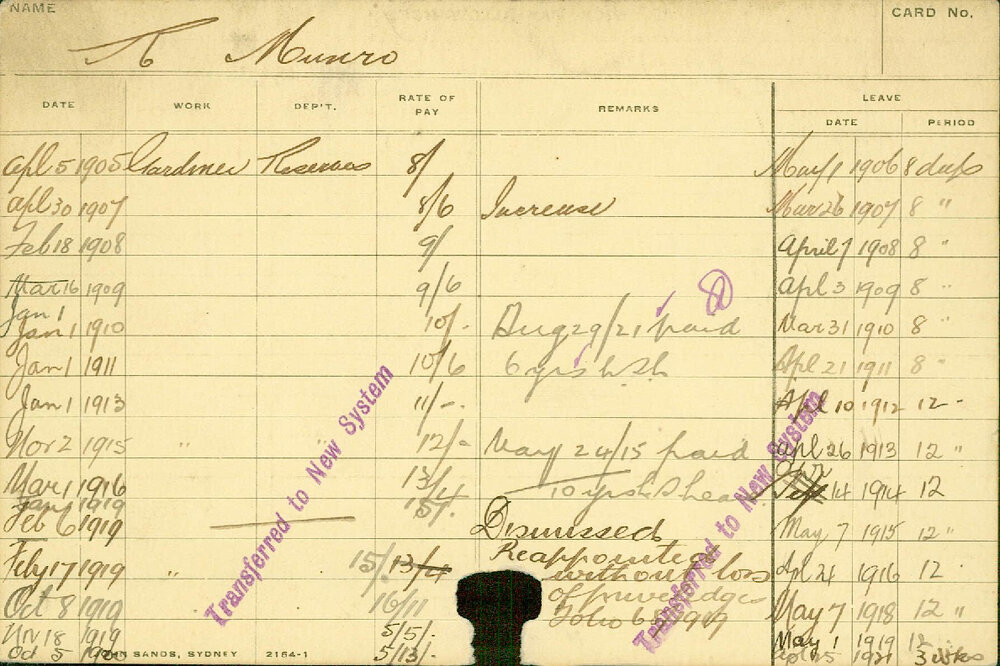 NAME
CARD No.
Munro
DATE WORK DEP'T. RATE OF PAY REMARKS LEAVE DATE PERIOD
Apl 5 1905 Gardiner Reserves 8/ May 1 1906 8 days
Apl 30 1907 8/6 Increase Mar 26 1907 8 "
Feb 18 1908 9/ April 7 1908 8 "
Mar 16 1909 9/6 Apl 3 1909 8 "
Jan 1
Jan 1 1910 10/- Aug 29/21 paid Mar 31 1910 8 "
Jan 1 1911 10/6 6 yrs Apl 21 1911 8 "
Jan 1 1913 11/- Apl 10 1912 12 "
Nov 2 1915 " " 12/- May 24/15 paid Apl 26 1913 12 "
Mar 1 1916 13/4 10 yrs Apr 14 1914 12
Jan 1 1919 15/.
Feb 6 1919 Dismissed May 7 1915 12 "
Feby 17 1919 " 15/. 13/4 Reappointed without loss Apl 24 1916 12 "
Oct 8 1919 16/11 of priveledges May 7 1918 12 "
Folio 1919
Nov 18 1919 5/5/- May 1 1919 12
Oct 5 5/13/- 3 wks
JOHN SANDS, SYDNEY 2164-1
Transferred to New System
Transferred to New System